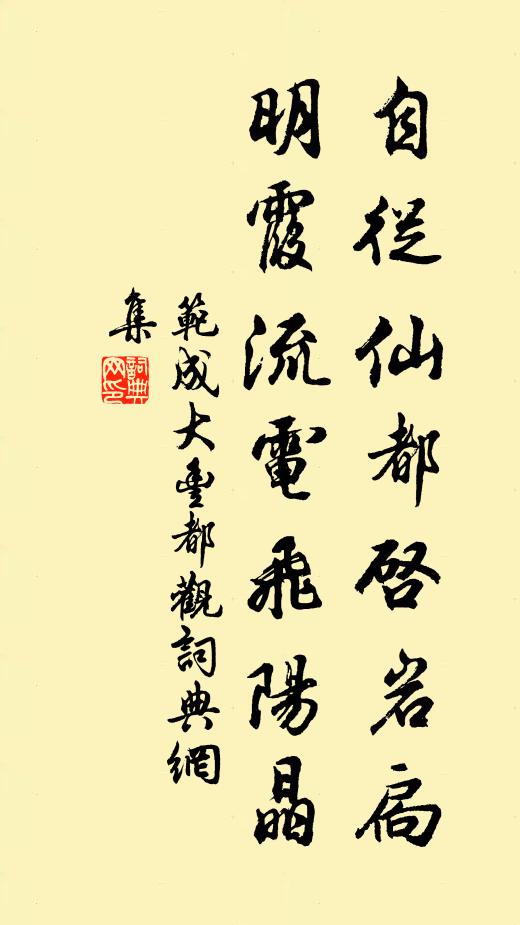 自從仙都啓岩扃
明霞流電飛陽晶
範成大豊都觀詞典網
集
詞典网印